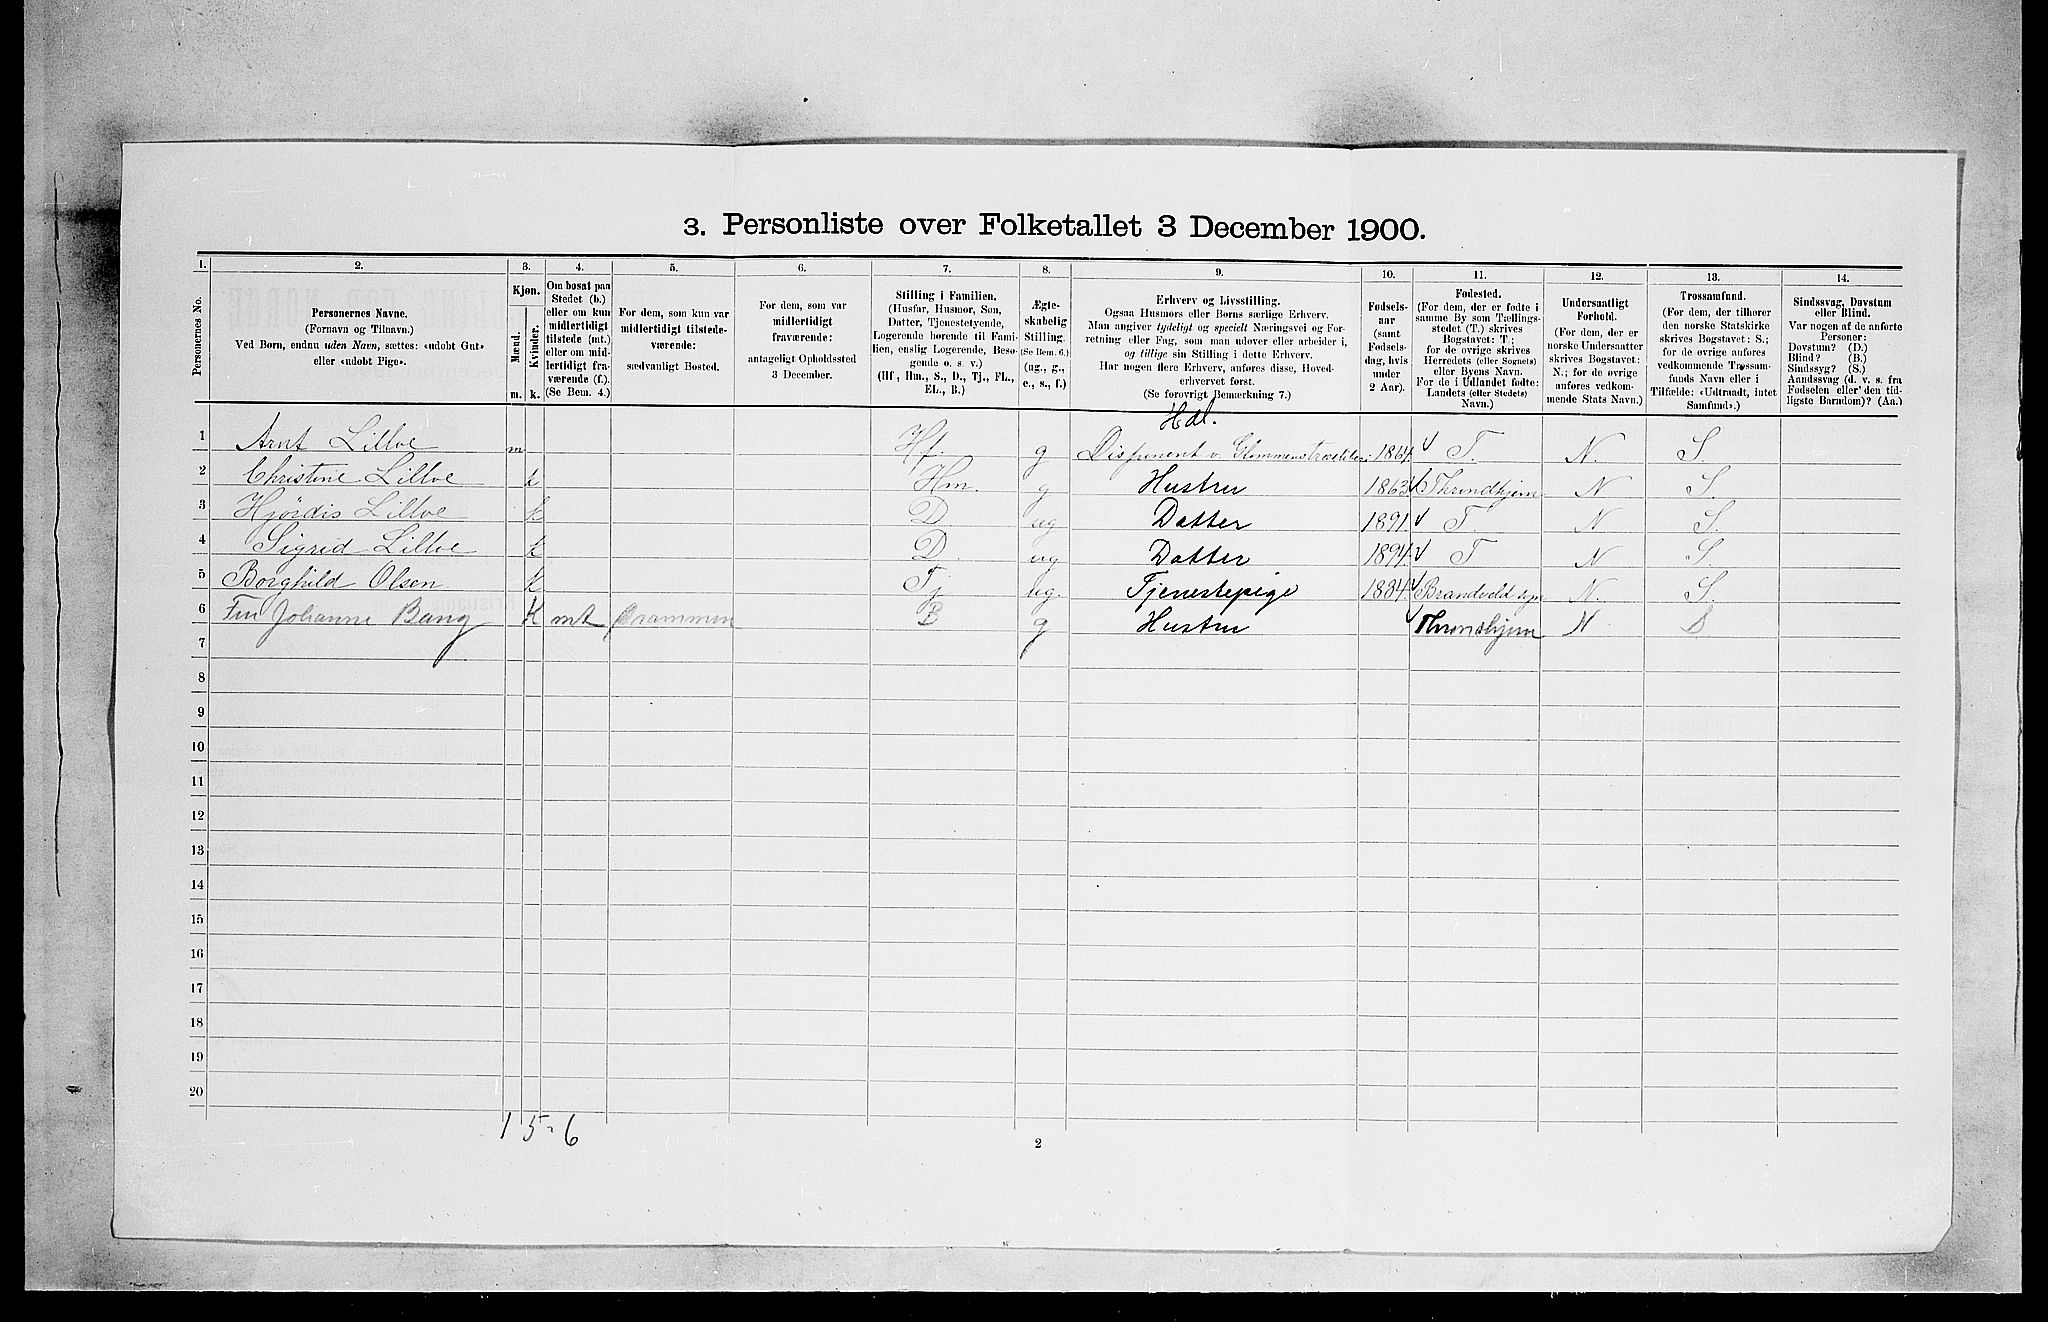 3. Personliste over Folketallet 3 December 1900.
1. 2. 3. 4. 5. 6. 7. 8. 9. 10. 11. 12. 13. 14.
Personernes No.
Personernes Navne.
(Fornavn og Tilnavn.)
Ved Børn, endnu uden Navn, sættes: «udøbt Gut»
eller «udøbt Pige».
Kjøn.
Mænd.
Kvinder.
m. k.
Om bosat paa
Stedet (b.)
eller om kun
midlertidigt
tilstede (mt.)
eller om mid-
lertidigt fra-
værende (f.).
(Se Bem. 4.)
For dem, som kun var
midlertidigt tilstede-
værende:
sædvanligt Bosted.
For dem, som var
midlertidigt
fraværende:
antageligt Opholdssted
3 December.
Stilling i Familien.
(Husfar, Husmor, Søn,
Datter, Tjenestetyende,
Logerende hørende til Fami-
lien, enslig Logerende, Besø-
gende o. s. v.)
(Hf, Hm., S., D., Tj., FL.,
EL., B.)
Ægte-
skabelig
Stilling.
(Se Bem. 6.)
(ug., g.,
e., s., f.)
Erhverv og Livsstilling.
Ogsaa Husmors eller Børns særlige Erhverv.
Man angiver tydeligt og specielt Næringsvei og For-
retning eller Fag, som man udøver eller arbeider i,
og tillige sin Stilling i dette Erhverv.
Har nogen flere Erhverv, anføres disse, Hoved-
erhvervet først.
(Se forøvrigt Bemærkning 7.)
Fødsels-
aar
(samt
Fødsels-
dag, hvis
under
2 Aar).
Fødested.
(For dem, der er fødte i
samme By som Tællings-
stedet (T.) skrives
Bogstavet: T.;
for de øvrige skrives
Herredets (eller Sognets)
eller Byens Navn.
For de i Udlandet fødte:
Landets (eller Stedets)
Navn.)
Undersaatligt
Forhold.
(For dem, der er
norske Undersaatter
skrives Bogstavet:
N.; for de øvrige
anføres vedkom-
mende Stats Navn.)
Trossamfund.
(For dem, der tilhører
den norske Statskirke
skrives Bogstavet: S.;
for de øvrige anføres
vedkommende Trossam-
funds Navn eller i
Tilfælde: «Udtraadt, intet
Samfund».)
Sindssvag, Døvstum
eller Blind.
Var nogen af de anførte
Personer:
Døvstum? (D.)
Blind? (B.)
Sindssyg? (S.)
Aandssvag (d. v. s. fra
Fødselen eller den tid-
ligste Barndom)? (Aa.)
Hdl.
1 Arnt Lilloe m Hf. g Disponent v. 1864 T. N. S.
2 Christine Lilloe k Hm. g Hustru 1863 Throndhjem N S.
3 Hjørdis Lilloe k D. ug Datter 1891 T. N S.
4 Sigrid Lilloe k D. ug Datter 1894 T N S.
5 Borghild Olsen k Tj ug. Tjenestepige 1884 Brandvold N. S.
6 Fru Johanne Bang K mt Drammen B g Hustru Thronshjem N S
7
8
9
10
11
12
13
14
15
16
17
18
19
20
1 5 - 6
2